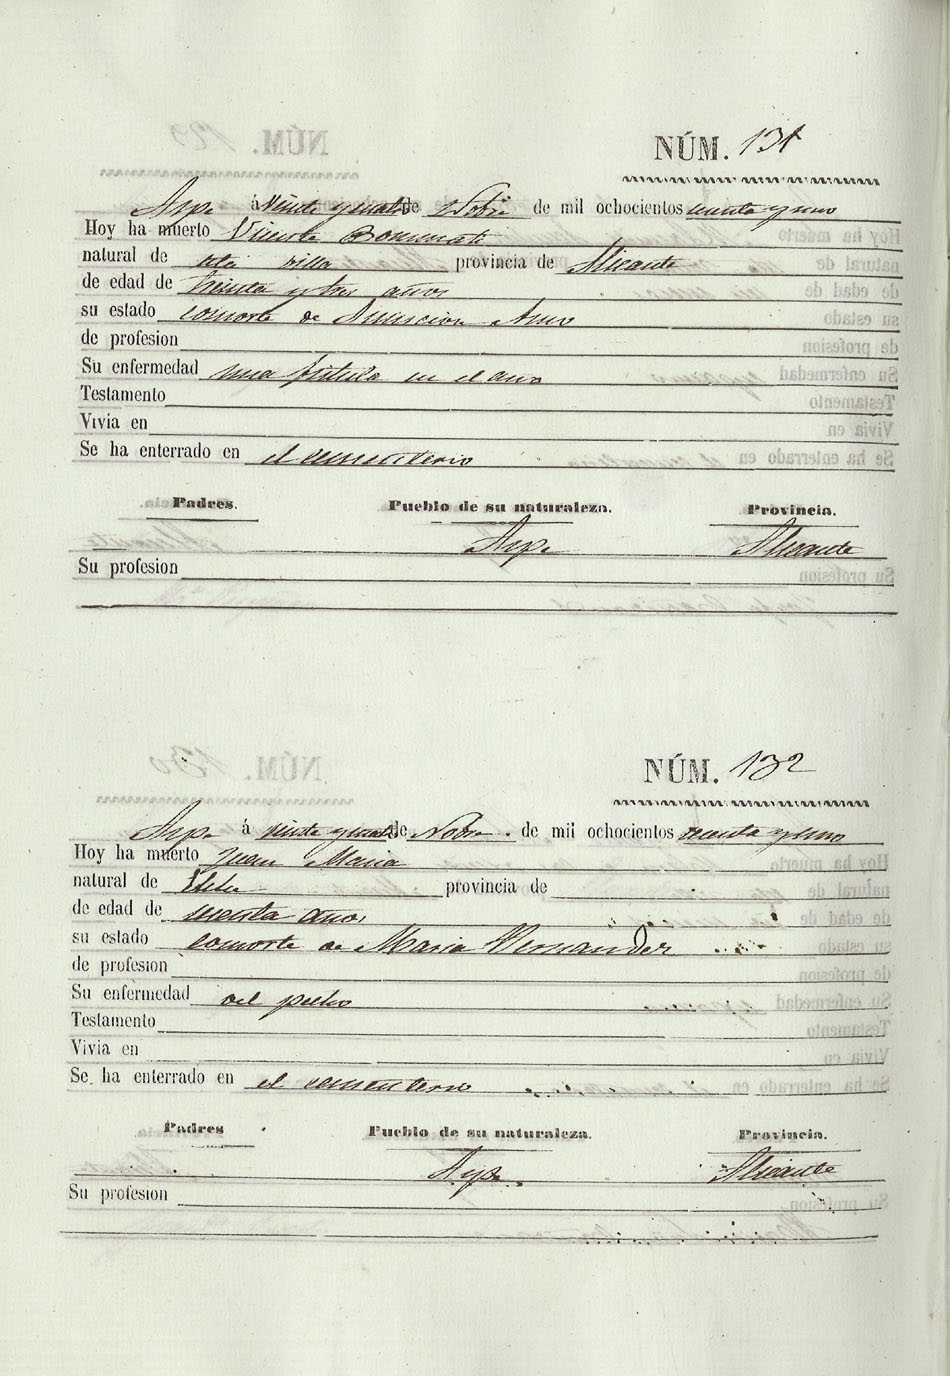 NÚM. 131
Aspe á veinte y cuatro de Nobre de mil ochocientos sesenta y uno
Hoy ha muerto Vicente Bonmati
natural de esta villa provincia de Alicante
de edad de treinta y tres años
su estado consorte de Asuncion
de profesion
Su enfermedad una fistula en el ano
Testamento
Vivia en
Se ha enterrado en el cementerio
Padres. Pueblo de su naturaleza. Provincia.
Aspe Alicante
Su profesion
NÚM. 132
Aspe á veinte y cuatro de Nobre. de mil ochocientos sesenta y uno
Hoy ha muerto Juan Maria
natural de Elche provincia de
de edad de sesenta años
su estado consorte de Maria Hernandez
de profesion
Su enfermedad del pecho
Testamento
Vivia en
Se ha enterrado en el cementerio
Padres Pueblo de su naturaleza. Provincia.
Aspe Alicante
Su profesion